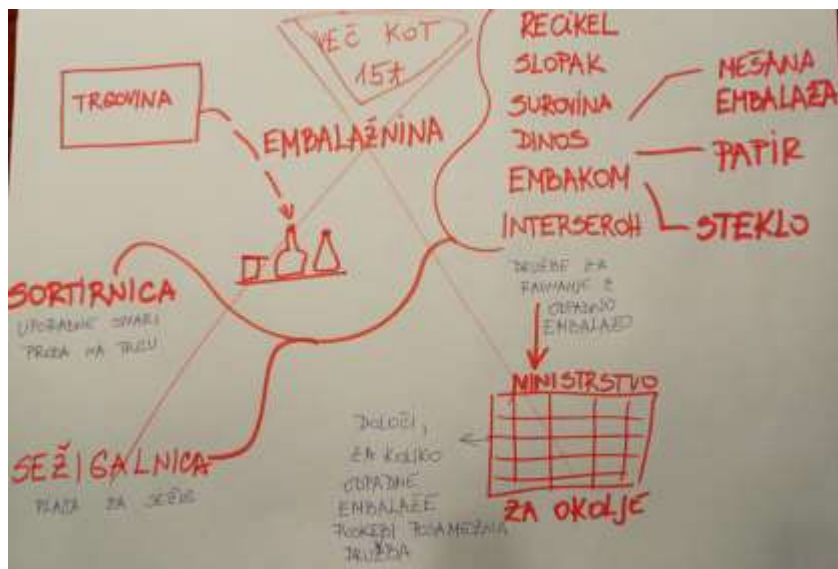 VEČ KOT
15t
TRGOVINA
EMBALAŽNINA
RECIKEL
SLOPAK
SUROVINA
DINOS
EMBAKOM
INTERSEROH
MEŠANA
EMBALAŽA
PAPIR
STEKLO
DRUŽBE ZA
RAVNANJE Z
ODPADNO
EMBALAŽO
SORTIRNICA
UPORABNE STVARI
PRODA NA TRGU
SEŽIGALNICA
PLAČA ZA SEŽIG
MINISTRSTVO
ZA OKOLJE
DOLOČI,
ZA KOLIKO
ODPADNE
EMBALAŽE
POSKRBI POSAMEZNA
DRUŽBA